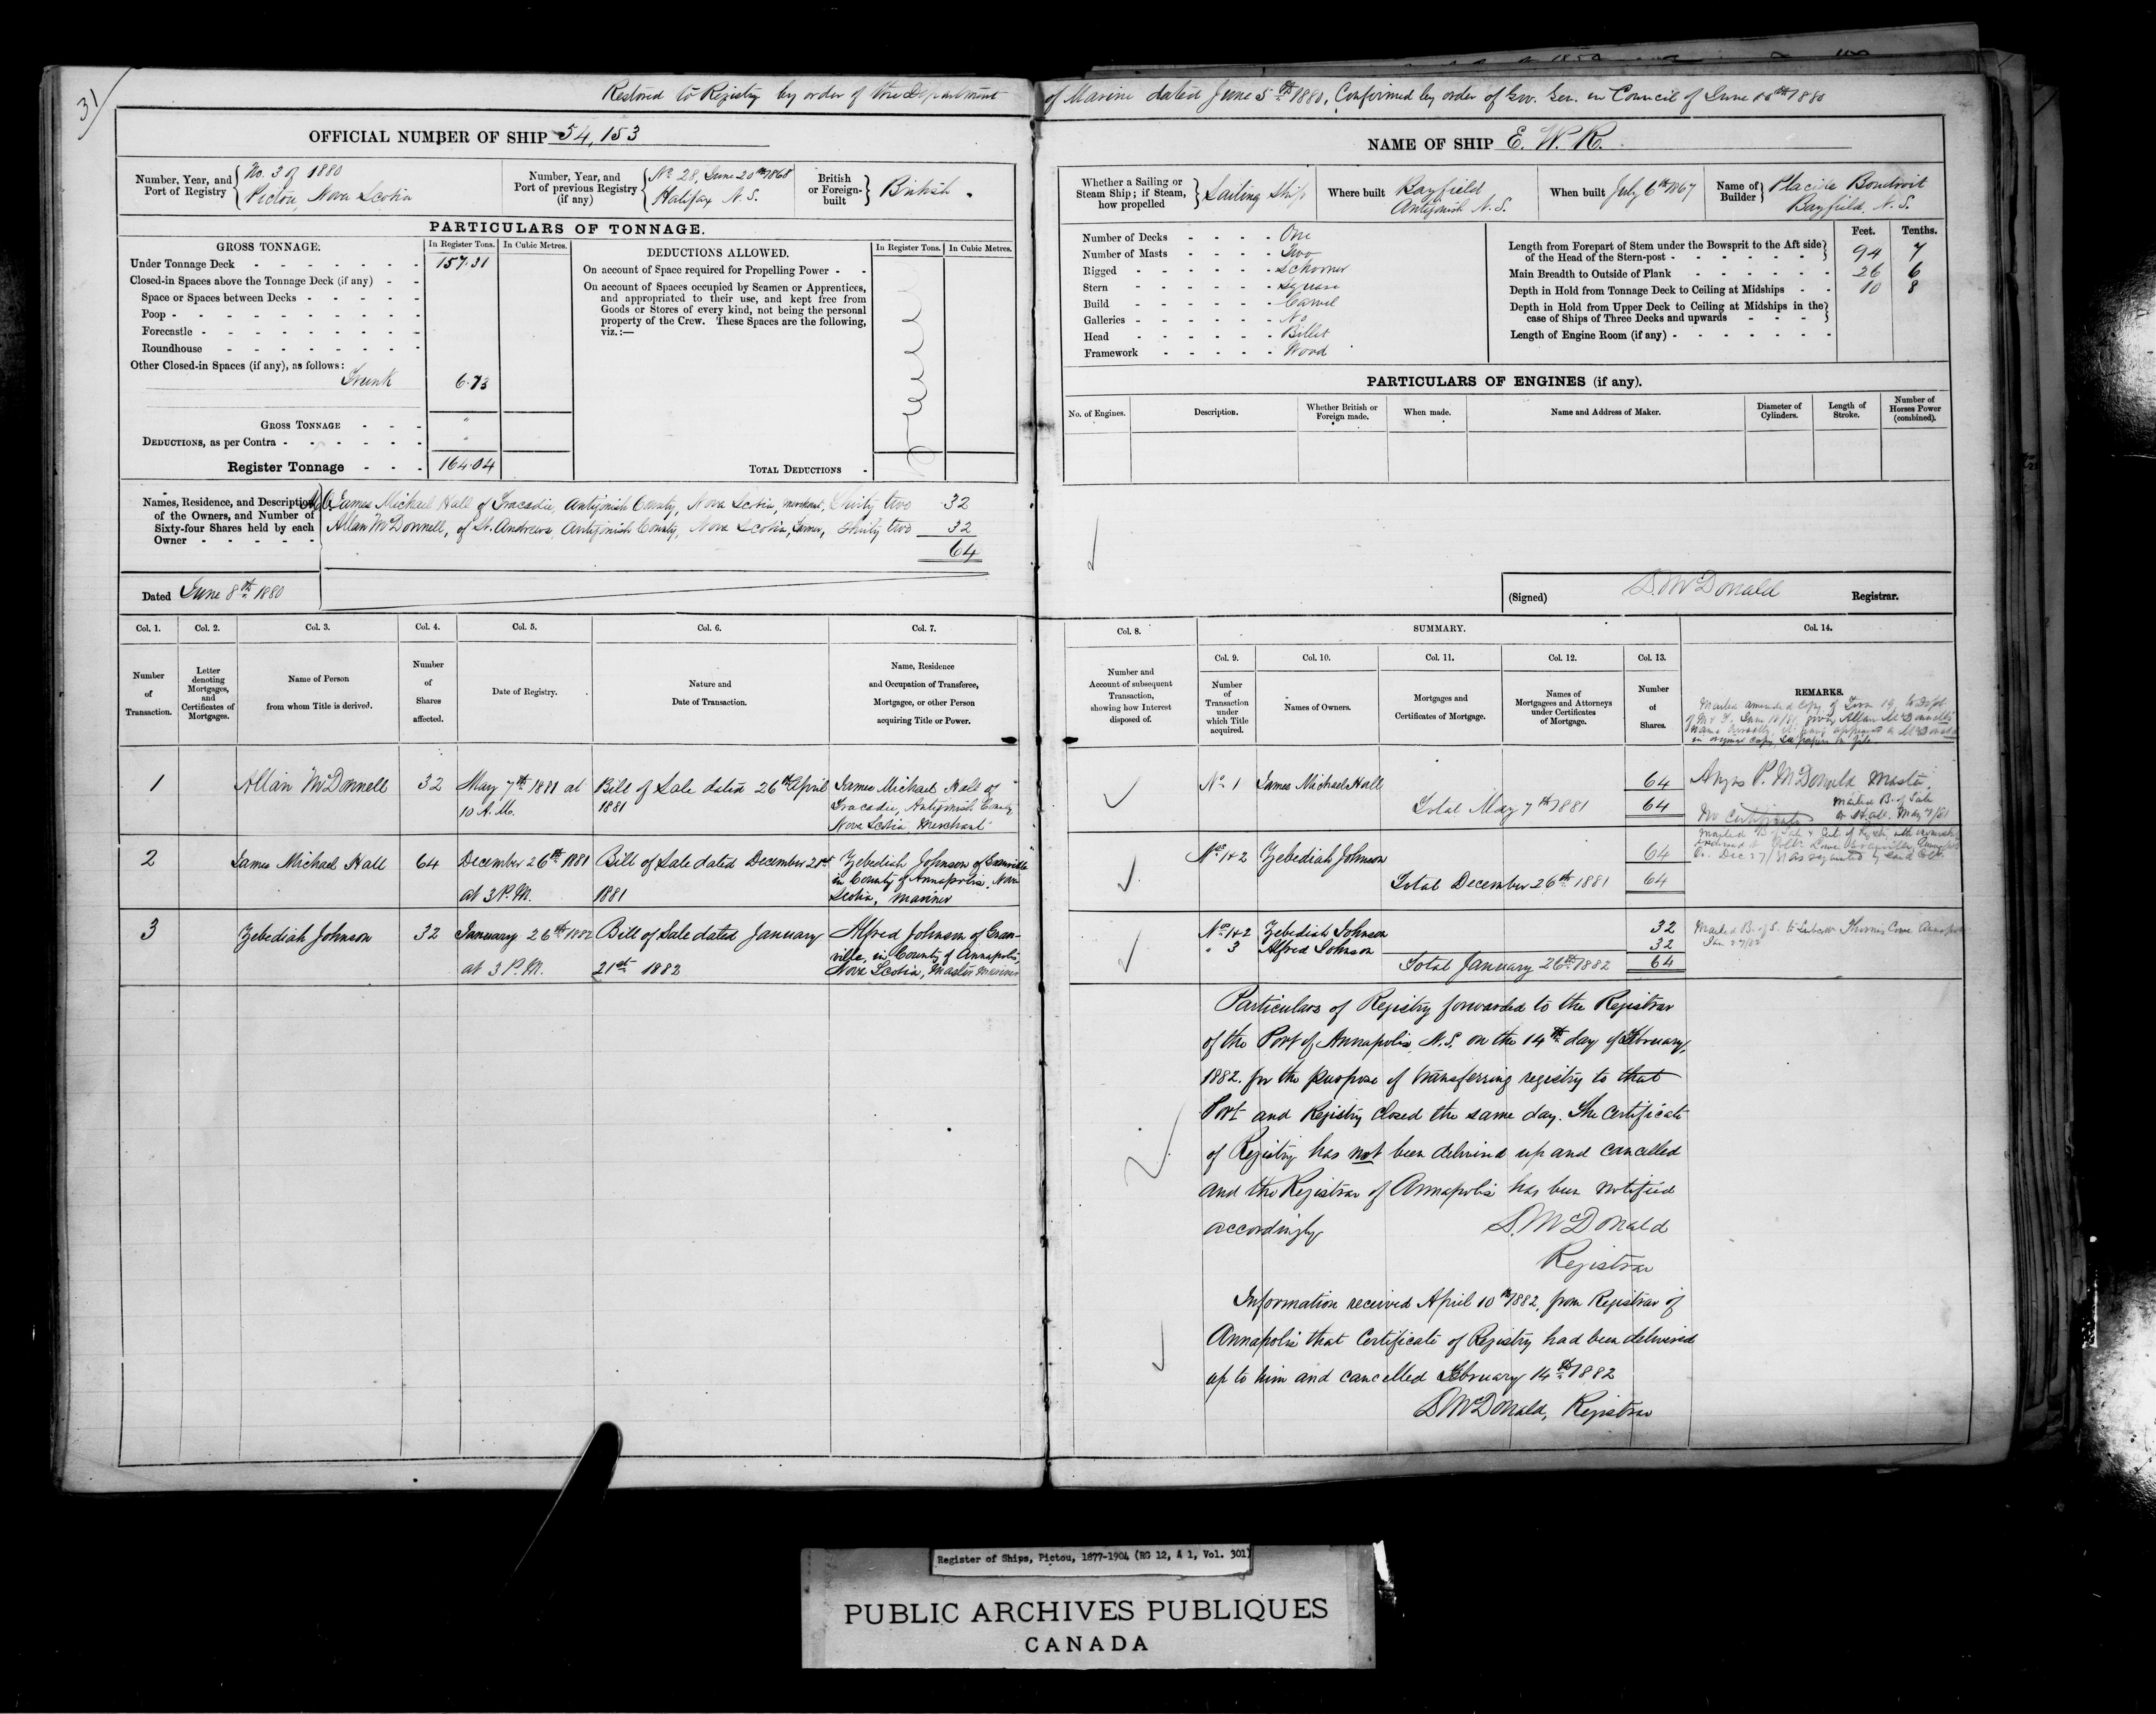 31
Restored to Registry by order of the Department of Marine dated June 5th 1880, Confirmed by order of Gov. Gen. in Council of June 10th 1880
OFFICIAL NUMBER OF SHIP 54,153
Number, Year, and Port of Registry { No. 3 of 1880
Pictou, Nova Scotia
Number, Year, and Port of previous Registry (if any) { No 28, June 20th 1868
Halifax N.S.
British or Foreign-built } British
PARTICULARS OF TONNAGE.
GROSS TONNAGE.
In Register Tons. In Cubic Metres.
Under Tonnage Deck 157.31
Closed-in Spaces above the Tonnage Deck (if any)
Space or Spaces between Decks
Poop
Forecastle
Roundhouse
Other Closed-in Spaces (if any), as follows:
Trunk 6.73
GROSS TONNAGE "
DEDUCTIONS, as per Contra "
Register Tonnage 164.04
DEDUCTIONS ALLOWED.
In Register Tons. In Cubic Metres.
On account of Space required for Propelling Power
On account of Spaces occupied by Seamen or Apprentices,
and appropriated to their use, and kept free from
Goods or Stores of every kind, not being the personal
property of the Crew. These Spaces are the following,
viz.:—
TOTAL DEDUCTIONS
Names, Residence, and Description
of the Owners, and Number of
Sixty-four Shares held by each
Owner
James Michael Hall of Tracadie, Antigonish County, Nova Scotia, merchant, Thirty two 32
Allan McDonnell, of St. Andrews, Antigonish County, Nova Scotia, farmer, thirty two 32
64
Dated June 8th 1880
NAME OF SHIP E. W. R.
Whether a Sailing or Steam Ship; if Steam, how propelled } Sailing Ship
Where built Bayfield
Antigonish N.S.
When built July 6th 1867
Name of Builder } Placide Boudroit
Bayfield, N.S.
Number of Decks One
Number of Masts Two
Rigged Schooner
Stern Square
Build Carvel
Galleries No
Head Billet
Framework Wood
Feet. Tenths.
Length from Forepart of Stem under the Bowsprit to the Aft side
of the Head of the Stern-post 94 7
Main Breadth to Outside of Plank 26 6
Depth in Hold from Tonnage Deck to Ceiling at Midships 10 8
Depth in Hold from Upper Deck to Ceiling at Midships in the
case of Ships of Three Decks and upwards
Length of Engine Room (if any)
PARTICULARS OF ENGINES (if any).
No. of Engines. Description. Whether British or Foreign made. When made. Name and Address of Maker. Diameter of Cylinders. Length of Stroke. Number of Horses Power (combined).
(Signed) D. McDonald Registrar.
Col. 1. Col. 2. Col. 3. Col. 4. Col. 5. Col. 6. Col. 7.
Number of Transaction.
Letter denoting Mortgages, and Certificates of Mortgages.
Name of Person from whom Title is derived.
Number of Shares affected.
Date of Registry.
Nature and Date of Transaction.
Name, Residence and Occupation of Transferee, Mortgagee, or other Person acquiring Title or Power.
1 Allan McDonnell 32 May 7th 1881 at Bill of Sale dated 26th April James Michael Hall of
10 A.M. 1881 Tracadie, Antigonish County
Nova Scotia Merchant
2 James Michael Hall 64 December 26th 1881 Bill of Sale dated December 21st Zebediah Johnson of Granville
at 3 P.M. 1881 in County of Annapolis, Nova
Scotia, mariner
3 Zebediah Johnson 32 January 26th 1882 Bill of Sale dated January Alfred Johnson of Gran-
at 3 P.M. 21st 1882 ville, in County of Annapolis,
Nova Scotia, Master Mariner
Col. 8. SUMMARY. Col. 14.
Col. 9. Col. 10. Col. 11. Col. 12. Col. 13.
Number and Account of subsequent Transaction, showing how Interest disposed of.
Number of Transaction under which Title acquired.
Names of Owners.
Mortgages and Certificates of Mortgage.
Names of Mortgagees and Attorneys under Certificates of Mortgage.
Number of Shares.
REMARKS.
Mailed amended copy of Form 19, to Dept.
of M & F. June giving Allan McDonnell's
name correctly, it having appeared as McDonald
in original copy. See papers on file
No 1 James Michael Hall 64
Total May 7th 1881 64
Angus P. McDonald Master
Mailed B. of Sale
No certificate to Hall May 7/81
Nos 1&2 Zebediah Johnson 64
Total December 26th 1881 64
Mailed B of Sale & Cert. of Registry with ownership
endorsed
Dec 27/81 as requested by said Coll.
Nos 1&2 Zebediah Johnson 32
" 3 Alfred Johnson 32
Total January 26th 1882 64
Mailed B. of S. to
Jan 27/82
Particulars of Registry forwarded to the Registrar
of the Port of Annapolis, N.S. on the 14th day of February,
1882. for the purpose of transferring registry to that
Port and Registry Closed the same day. The Certificate
of Registry has not been delivered up and cancelled
and the Registrar of Annapolis has been notified
accordingly D. McDonald
Registrar
Information received April 10th 1882, from Registrar of
Annapolis that Certificate of Registry had been delivered
up to him and cancelled February 14th 1882
D McDonald, Registrar
Register of Ships, Pictou, 1877-1904 (RG 12, A 1, Vol. 301)
PUBLIC ARCHIVES PUBLIQUES
CANADA